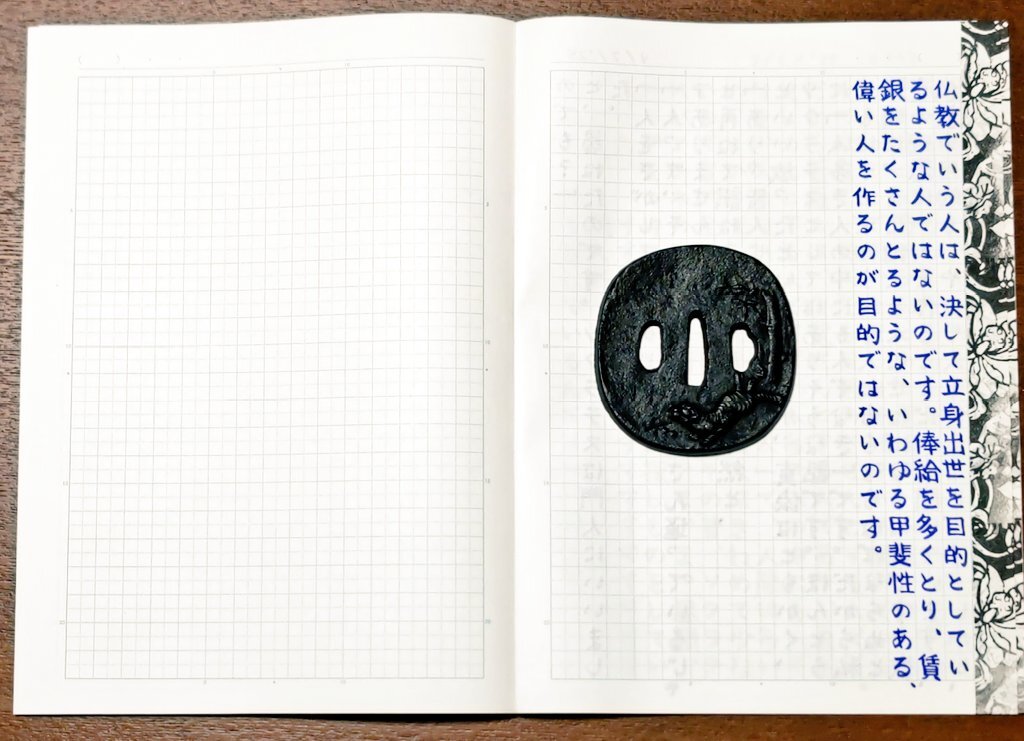 仏教でいう人は、決して立身出世を目的としてい
るような人ではないのです。俸給を多くとり、賃
銀をたくさんとるような、いわゆる甲斐性のある、
偉い人を作るのが目的ではないのです。